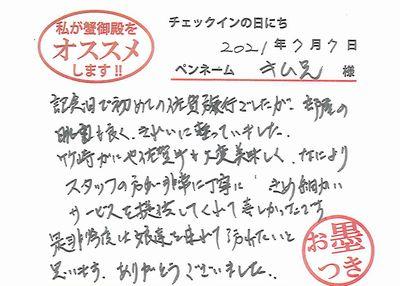 私が蟹御殿を
オススメ
します!!
チェックインの日にち
2021年7月7日
ペンネーム キム兄 様
記念日で初めての佐賀旅行でしたが、部屋の
眺望も良く、きれいに整っていました。
竹崎かにや佐賀牛も大変美味しく、なにより
スタッフの方が非常に丁寧に きめ細かい
サービスを提供してくれて嬉しかったです
是非今度は娘達を連れて訪れたいと
思います。ありがとうございました。
お墨
つき